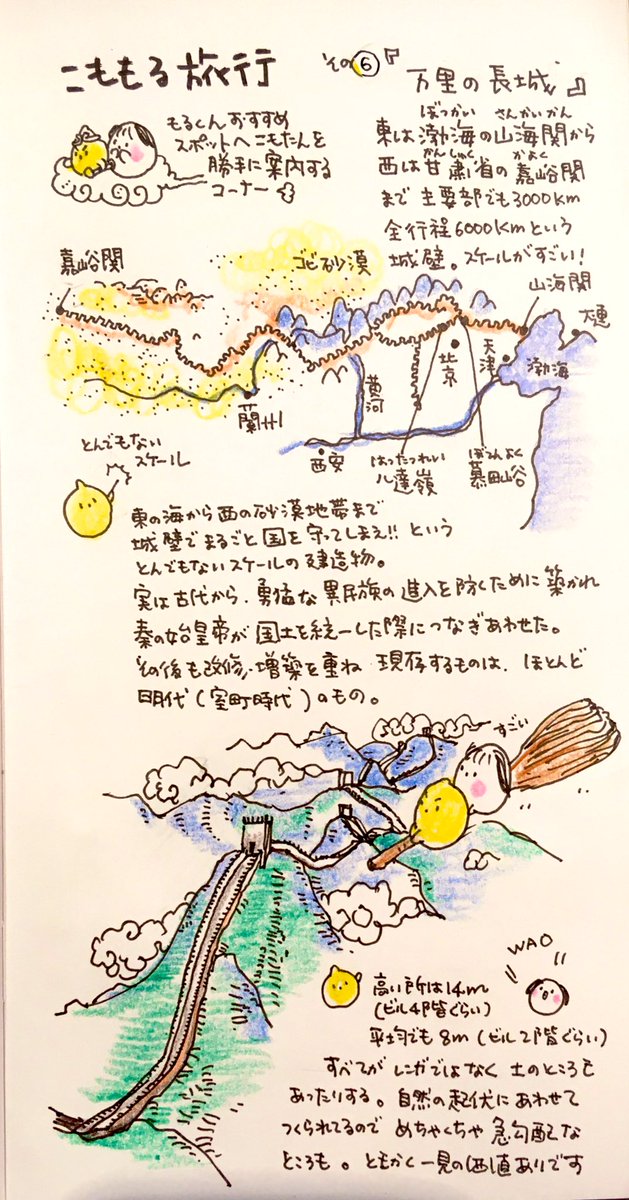 こももる旅行 その⑥『万里の長城』
もるくんおすすめ
スポットへこもたんを
勝手に案内する
コーナー
ぼっかい さんかいかん
東は渤海の山海関から
かんしゅく かよく
西は甘粛省の嘉峪関
まで 主要部でも3000km
全行程6000kmという
城壁。スケールがすごい!
嘉峪関
ゴビ砂漠
山海関
大連
渤海
天津
北京
黄河
蘭州
西安
はったつれい
八達嶺
ぼでんよく
慕田峪
とんでもない
スケール
東の海から西の砂漠地帯まで
城壁でまるごと国を守ってしまえ!!という
とんでもないスケールの建造物。
実は古代から、勇猛な異民族の進入を防ぐために築かれ
秦の始皇帝が国土を統一した際につなぎあわせた。
その後も改修、増築を重ね 現存するものは、ほとんど
明代(室町時代)のもの。
すごい
WAO
高い所は14m
(ビル4階ぐらい)
平均でも8m(ビル2階ぐらい)
すべてがレンガではなく土のところも
あったりする。自然の起伏にあわせて
つくられてるので めちゃくちゃ急勾配な
ところも。ともかく一見の価値ありです